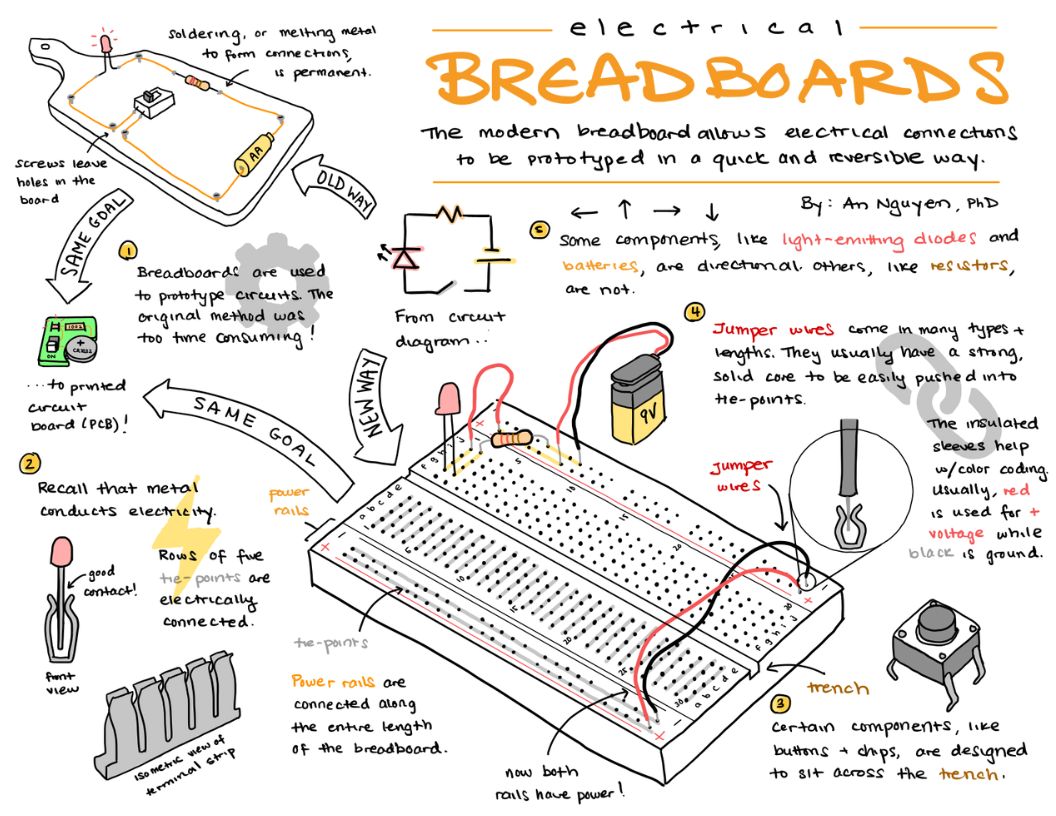 electrical
BREADBOARDS
The modern breadboard allows electrical connections
to be prototyped in a quick and reversible way.
By: An Nguyen, PhD
soldering, or melting metal
to form connections,
is permanent.
AA
screws leave
holes in the
board
OLD WAY
SAME GOAL
1
Breadboards are used
to prototype circuits. The
original method was
too time consuming!
From circuit
diagram..
NEW WAY
ON
+
CR2032
...to printed
circuit
board (PCB)!
SAME GOAL
2
Recall that metal
conducts electricity.
good
contact!
front
view
Rows of five
tie-points are
electrically
connected.
isometric view of
terminal strip
power
rails
tie-points
Power rails are
connected along
the entire length
of the breadboard.
now both
rails have power!
9V
a b c d e
f g h i j
trench
3
Certain components, like
buttons + chips, are designed
to sit across the trench.
4
Jumper wires come in many types +
lengths. They usually have a strong,
solid core to be easily pushed into
tie-points.
Jumper
wires
The insulated
sleeves help
w/color coding.
Usually, red
is used for +
voltage while
black is ground.
5
Some components, like light-emitting diodes and
batteries, are directional. Others, like resistors,
are not.